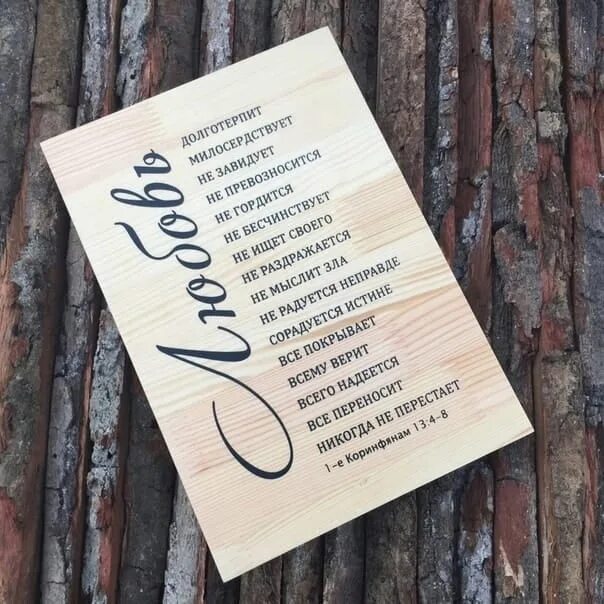 Любовь
ДОЛГОТЕРПИТ
МИЛОСЕРДСТВУЕТ
НЕ ЗАВИДУЕТ
НЕ ПРЕВОЗНОСИТСЯ
НЕ ГОРДИТСЯ
НЕ БЕСЧИНСТВУЕТ
НЕ ИЩЕТ СВОЕГО
НЕ РАЗДРАЖАЕТСЯ
НЕ МЫСЛИТ ЗЛА
НЕ РАДУЕТСЯ НЕПРАВДЕ
СОРАДУЕТСЯ ИСТИНЕ
ВСЕ ПОКРЫВАЕТ
ВСЕМУ ВЕРИТ
ВСЕГО НАДЕЕТСЯ
ВСЕ ПЕРЕНОСИТ
НИКОГДА НЕ ПЕРЕСТАЕТ
1-е Коринфянам 13:4-8